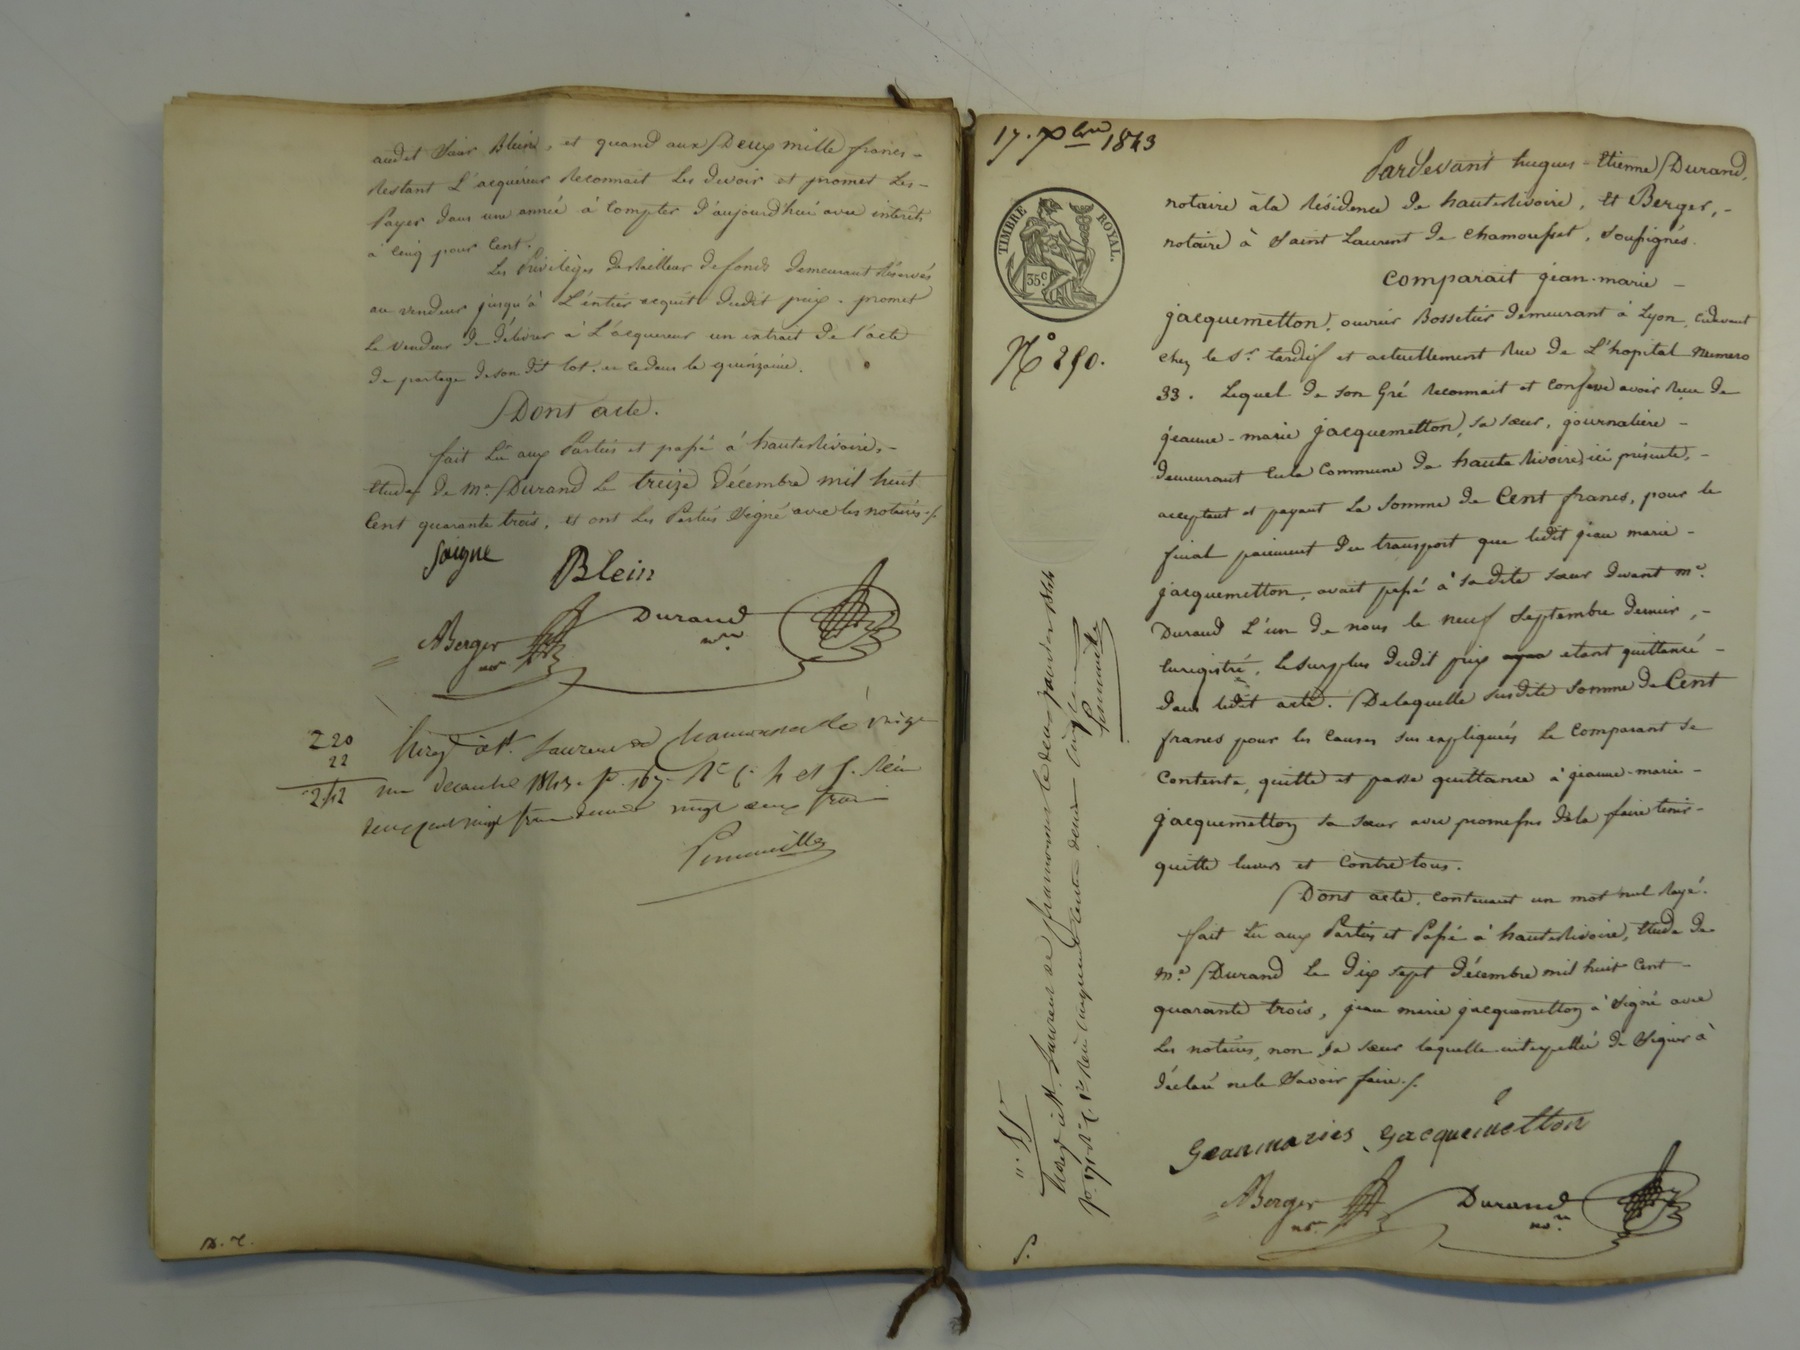 audit Sieur Blein, et quand aux Deux mille francs -
restant L'acquéreur reconnait Les devoir et promet Les -
Payer dans une année à compter d'aujourd'hui avec interêts
à cinq pour Cent.
Les Privilèges de Bailleur de fonds demeurant réservés
au vendeur jusqu'à L'entier acquit dudit prix. promet
Le vendeur de délivrer à L'acquereur un extrait de l'acte
de partage de son dit lot, et ce dans la quinzaine.
Dont acte.
fait Lû aux Parties et passé à hauterivoire, -
Etude de Me. Durand Le treize Décembre mil huit
Cent quarante trois, et ont Les Parties Signé avec les notaires ./.
Soigne Blein
ABerger nore Durand nore.
220
22
242
Enreg. à St. Laurent de Chamousset le vingt
un décembre 1843. fo. 167. Ro. C. 4 et 5. Reçu
deux cent vingt francs decime vingt deux francs
Pimmeville
17. Xbre 1843
TIMBRE ROYAL.
35c.
No 290.
Pardevant hugues - Etienne Durand,
notaire à la résidence de hauterivoire, et Berger, -
notaire à Saint Laurent de Chamousset, Soussignés.
Comparait jean-marie -
jacquemetton, ouvrier Bossetier demeurant à Lyon, cidevant
chez le Sr. tardif et actuellement rue de L'hopital Numero
33. Lequel de son Gré reconnait et confesse avoir reçu de
jeanne-marie jacquemetton, sa sœur, journalière -
demeurant en la Commune de haute rivoire, ici présente, -
acceptant et payant La Somme de Cent francs, pour le
final paiement du transport que ledit jean marie -
jacquemetton, avait passé à sadite sœur devant me.
Durand L'un de nous le neuf Septembre dernier, -
Enregistré, Le surplus dudit prix ayant etant quittancé -
dans ledit acte. De laquelle susdite Somme de Cent
francs pour les causes sus expliquées Le Comparant se
Contente, quitte et passe quittance à jeanne-marie -
jacquemetton sa sœur avec promesses de la faire tenir -
quitte envers et Contre tous.
Dont acte, contenant un mot nul rayé.
fait Lû aux Parties et Passé à hauterivoire, Etude de
me. Durand Le dix sept Décembre mil huit Cent -
quarante trois, jean marie jacquemetton à Signé avec
Les notaires, non sa sœur laquelle interpellée de Signer à
déclaré ne le Savoir faire ./.
Geanmaries Gacquemetton
ABerger nore. Durand nore.
Enreg. à St. Laurent de Chamousset le deux janvier 1844
Pimmeville